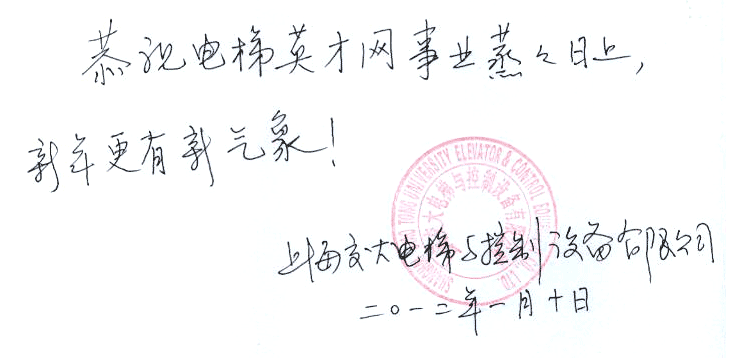 恭祝电梯英才网事业蒸々日上，
新年更有新气象！
上海交大电梯与控制设备有限公司
二〇一二年一月十日
TONG UNIVERSITY ELEVATOR & CONTROL
大电梯与控制设备有
CO., LTD.